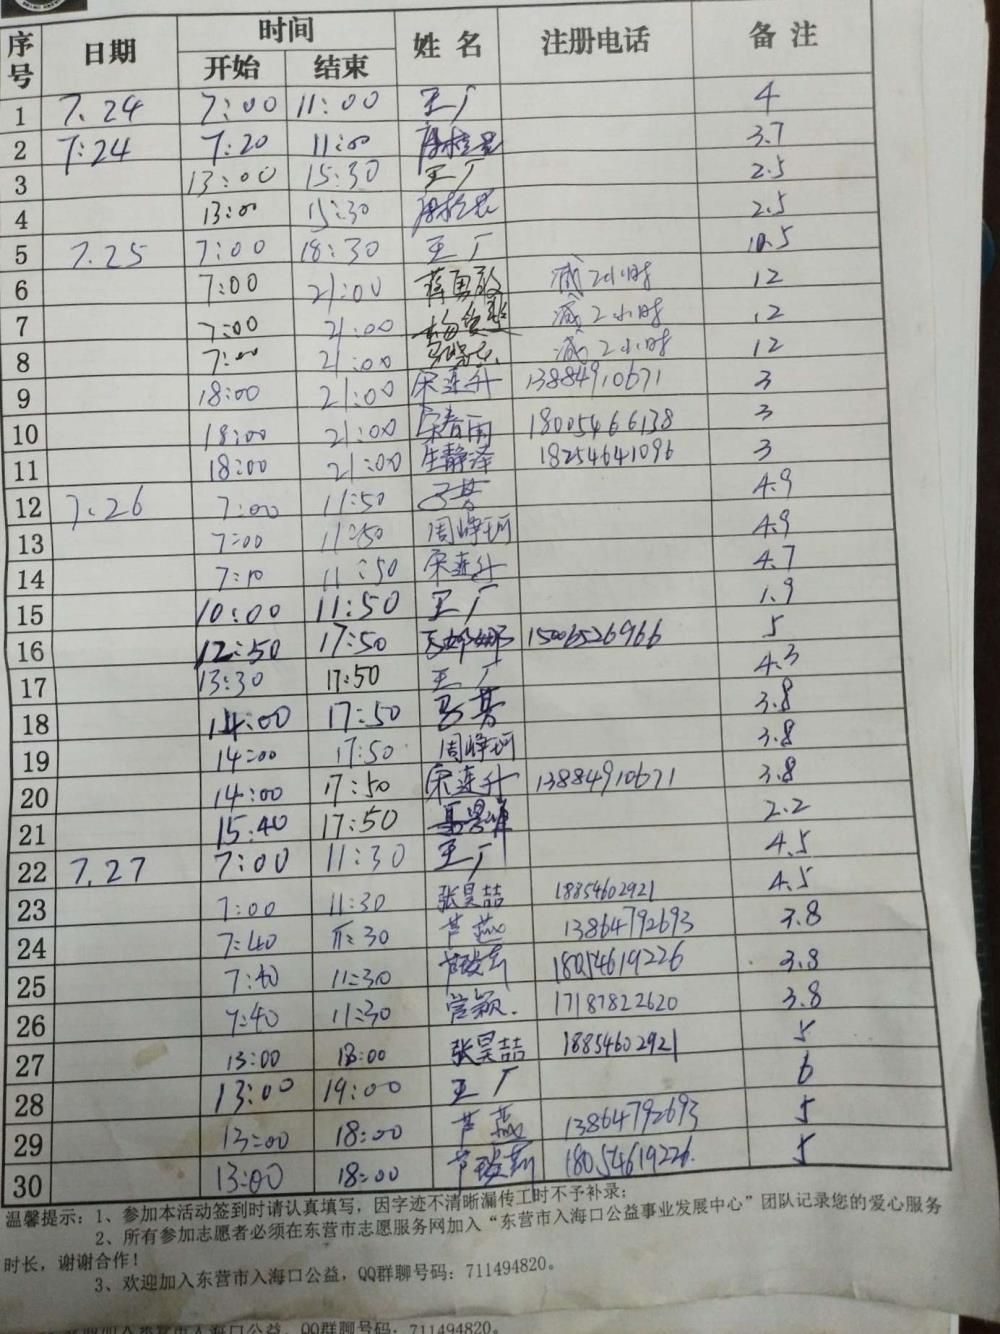 序号 日期 时间 姓名 注册电话 备注
开始 结束
1 7.24 7:00 11:00 王广 4
2 7:24 7:20 11:00 3.7
3 13:00 15:30 王广 2.5
4 13:00 15:30 2.5
5 7.25 7:00 18:30 王广 10.5
6 7:00 21:00 蒋勇敢 减2小时 12
7 7:00 21:00 减2小时 12
8 7:00 21:00 减2小时 12
9 18:00 21:00 宋连升 13884910671 3
10 18:00 21:00 宋春雨 18005466138 3
11 18:00 21:00 生静泽 18254641096 3
12 7.26 7:00 11:50 4.9
13 7:00 11:50 周峥珂 4.9
14 7:10 11:50 宋连升 4.7
15 10:00 11:50 王广 1.9
16 12:50 17:50 15065526966 5
17 13:30 17:50 王广 4.3
18 14:00 17:50 3.8
19 14:00 17:50 周峥珂 3.8
20 14:00 17:50 宋连升 13884910671 3.8
21 15:40 17:50 2.2
22 7.27 7:00 11:30 王广 4.5
23 7:00 11:30 张昊喆 18854602921 4.5
24 7:40 11:30 芦燕 13864792693 3.8
25 7:40 11:30 18054619226 3.8
26 7:40 11:30 官颖. 17187822620 3.8
27 13:00 18:00 张昊喆 18854602921 5
28 13:00 19:00 王广 6
29 13:00 18:00 芦燕 13864792693 5
30 13:00 18:00 18054619226. 5
温馨提示：1、参加本活动签到时请认真填写，因字迹不清晰漏传工时不予补录；
2、所有参加志愿者必须在东营市志愿服务网加入“东营市入海口公益事业发展中心”团队记录您的爱心服务
时长，谢谢合作！
3、欢迎加入东营市入海口公益，QQ群聊号码：711494820。
加入东营市入海口公益，QQ群聊号码：711494820。